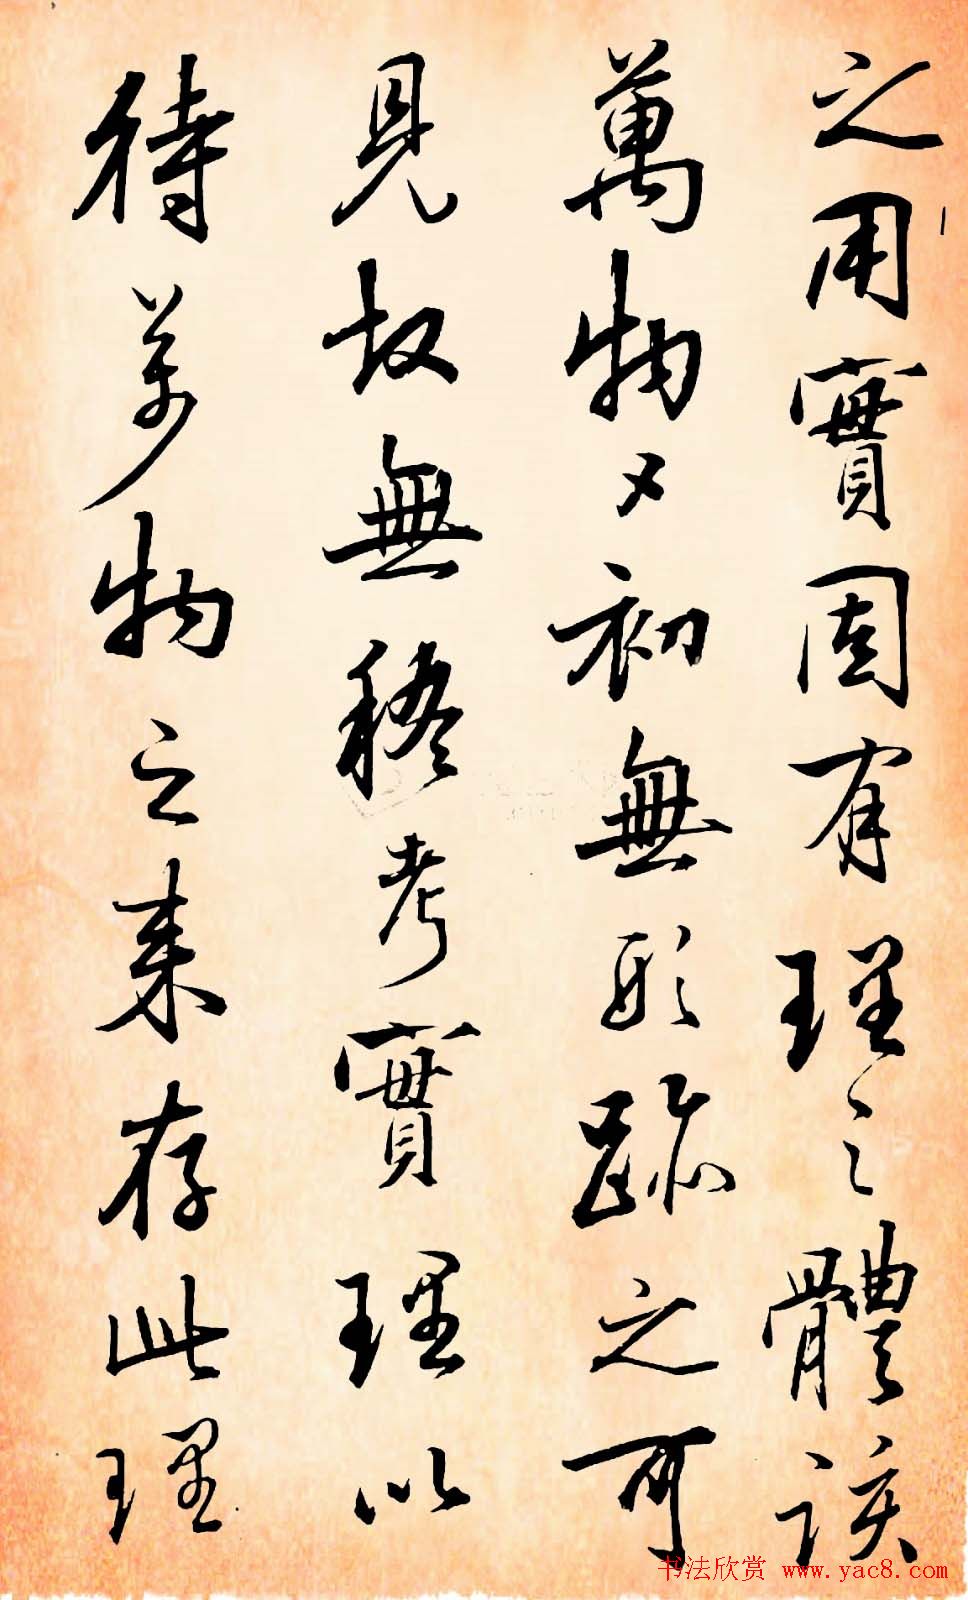 之用實固有理之體該
萬物又初無形跡之可
見故無稽考實理以
待萬物之來存此理
书法欣赏 www.yac8.com